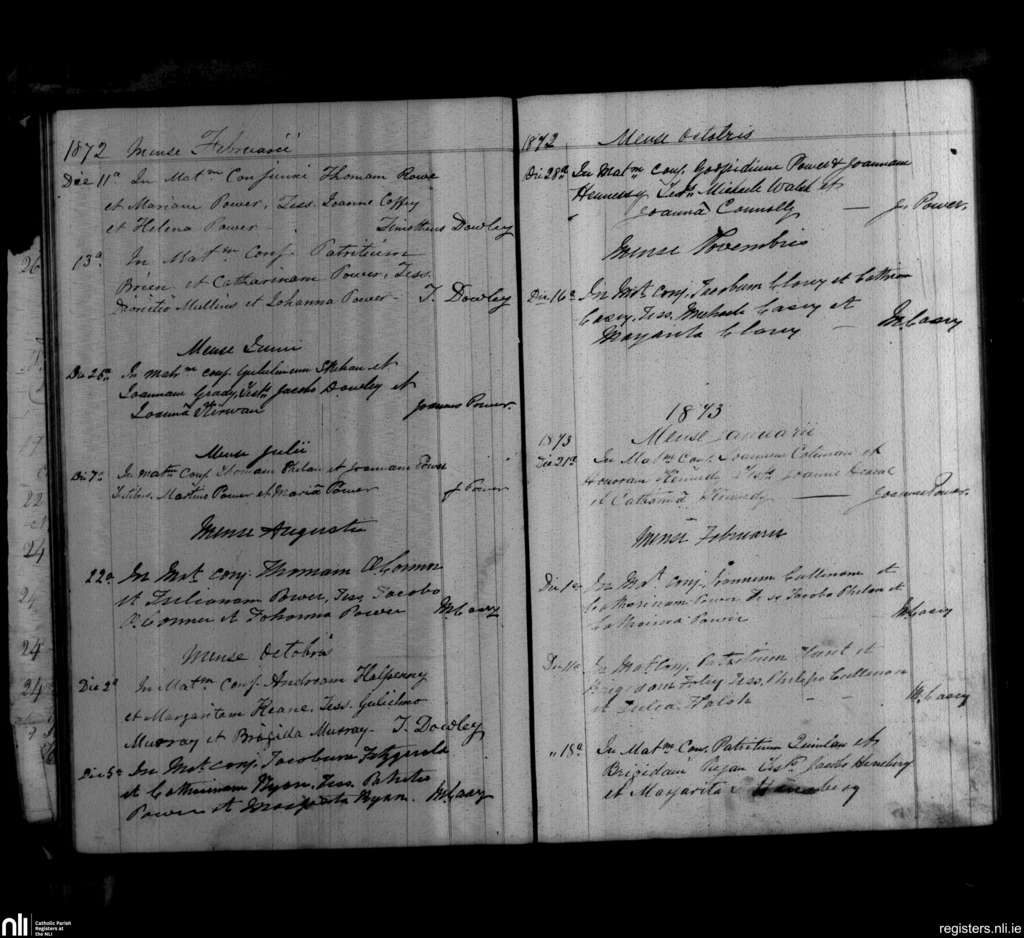 1872 Mense Februarii
Die 11ª In Matm Conjunxi Thomam Rowe
et Mariam Power, Tess. Joanne Coffey
et Helena Power - Timotheus Dowley
13ª In Matm Conj. Patritium
Brien et Catharinam Power, Tess.
Mullins et Johanna Power - T. Dowley
Mense Junii
Die 25ª In matm conj. Gulielmum Skehan et
Joannam Grady, Test Jacobo Dowley et
Joanna Kirwan Joannes Power.
Mense Julii
Die 7ª In matm Conj. Thomam Phelan et Joannam Power
Testibus Martino Power et Maria Power J Power
Mense Augusti
22ª In Mat. conj. Thomam O'Connor
et Julianam Power, Tess. Jacobo
O'Connor et Johanna Power M. Casey
Mense Octobris
Die 2ª In Matm Conj. Andream Halfpenny
et Margaritam Keane, Tess. Gulielmo
Murray et Brigida Murray - T. Dowley
Die 5ª In Mat. conj. Jacobum Fitzgerald
et Catharinam Ryan, Tess. Patritio
Power et Ryan. M. Casey
1872 Mense Octobris
Die 28ª In Matm Conj. Power & Joannam
Hennessy Test. Michaele Walsh et
Joanna Connolly - J. Power.
Mense Novembris
Die 16ª In Mat. conj. Jacobum Clancy et
Casey, Tess. Michaele Casey et
Margarita Clancy - M. Casey
1873
1873 Mense Januarii
Die 21ª In Matm Conj. Joannem Coleman et
Honoram Kennedy Test. Joanne
et Catharina Kennedy - Joannes Power.
Mense Februarii
Die 1ª In Mat. conj. Joannem Cullenan et
Catharinam Power Tess Jacobo Phelan et
Catharina Power M. Casey
Die In Mat Conj. Patritium Hunt et
Brigidam Foley Tess. Philippo Cullenan
et Julia Walsh - - M. Casey
" 18ª In Matm Conj. Patritium Quinlan et
Brigidam Ryan Test. Jacobo Hennebery
et Margarita Hennebery
26
17
22
24
24
24
24
nli Catholic Parish
Registers at
the NLI
registers.nli.ie